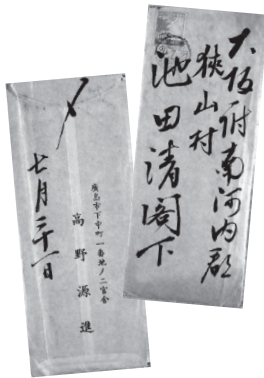 大阪府南河内郡
狭山村
池田清閣下
〆
廣島市下中町一番地ノ二官舎
高野源進
七月二十一日